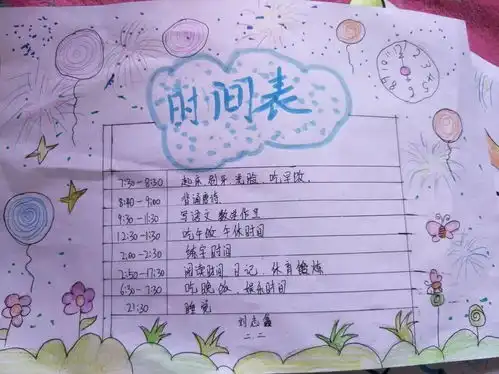 时间表
7:30-8:30 起床 刷牙 洗脸、吃早饭、
8:40-9:00
9:30-11:30 写语文 数学作业
12:30-1:30 吃午饭 午休时间
2:00-2:30 练字时间
2:50-17:30 阅读时间 日记、体育锻炼
6:30-7:30 吃晚饭、娱乐时间
21:30 睡觉
刘志鑫
二.二